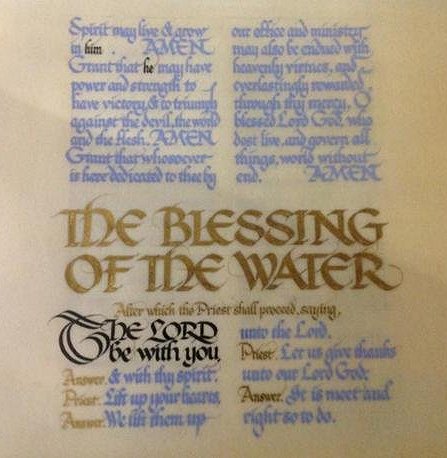 Spirit may live & grow
in him . AMEN
Grant that he may have
power and strength to
have victory, & to triumph
against the devil, the world
and the flesh. AMEN
Grant that whosoever
is here dedicated to thee by
our office and ministry
may also be endued with
heavenly virtues, and
everlastingly rewarded,
through thy mercy, O
blessed Lord God, who
dost live, and govern all
things, world without
end. AMEN
THE BLESSING
OF THE WATER
After which the Priest shall proceed, saying,
THE LORD
be with you.
Answer. & with thy spirit.
Priest. Lift up your hearts.
Answer. We lift them up
unto the Lord.
Priest. Let us give thanks
unto our Lord God;
Answer. It is meet and
right so to do.